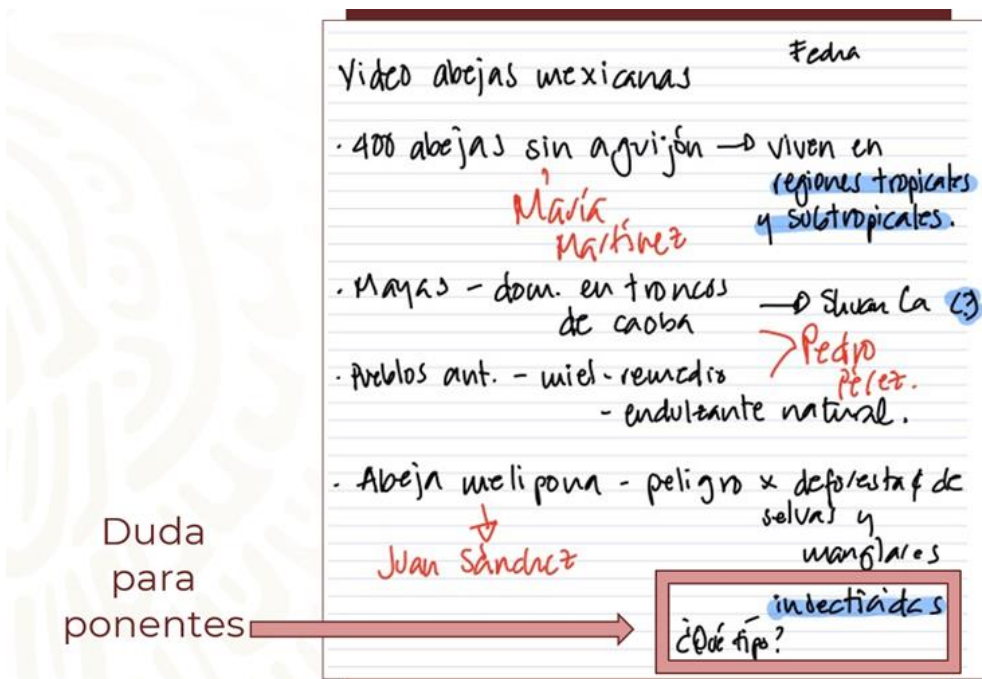 Fecha
Video abejas mexicanas
· 400 abejas sin aguijón → viven en
regiones tropicales
y subtropicales.
María
Martínez
· Mayas - dom. en troncos
de caoba
→ la (?)
Pedro
Pérez.
· Pueblos ant. - miel - remedio
- endulzante natural.
· Abeja melipona - peligro x deforesta de
selvas y
manglares
Juan Sánchez
insecticidas
¿Qué tipo?
Duda
para
ponentes